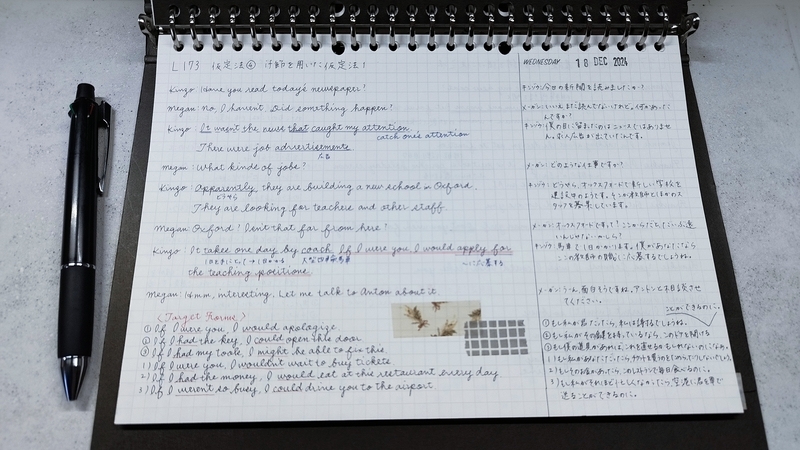 L173 仮定法④ 汗師を用いた仮定法!
WEDNESDAY 18 DEC 2024
Kingo: Have you read today's newspaper?
Megan: No, I haven't. Did something happen?
Kingo: It wasn't the news that caught my attention.
catch one's attention
There were job advertisements.
広告
Megan: What kinds of jobs?
Kingo: Apparently, they are building a new school in Oxford.
どうやら
They are looking for teachers and other staff.
Megan: Oxford? Isn't that far from here?
Kingo: It takes one day by coach. If I were you, I would apply for
大型四輪馬車
〜に応募する
the teaching positions.
Megan: Hmm, interesting. Let me talk to Anton about it.
<Target Forms>
① If I were you, I would apologize.
② If I had the key, I could open this door.
③ If I had my tools, I might be able to fix this.
1) If I were you, I wouldn't wait to buy tickets
2) If I had the money, I would eat at this restaurant every day
3) If I weren't so busy, I could drive you to the airport
キンゴウ:今日の新聞を読みましたか?
メーガン:いいえ、まだ読んでないけれど。何かあった
んですか?
キンゴウ:僕の目に留まったのはニュースではありませ
ん。求人広告が出ていたんです。
メーガン:どのような仕事ですか?
キンゴウ:どうやら、オックスフォードで新しい学校を
建設中のようです。そこが教師とほかのス
タッフを募集しています。
メーガン:オックスフォードです?ここからだとずいぶん遠
いんじゃないかしら?
キンゴウ:馬車で1日かかります。僕があなたなら
ここの教師の職に応募するでしょうね。
メーガン:うーん、面白そうですね。アントンと相談させ
てください。
ことができるのに。
①もし私が君だったら、謝るでしょうね。
②もし私がその鍵を持っているなら、このドアを開ける
③もし僕の道具があれば、これを直せるかもしれないのになぁ。